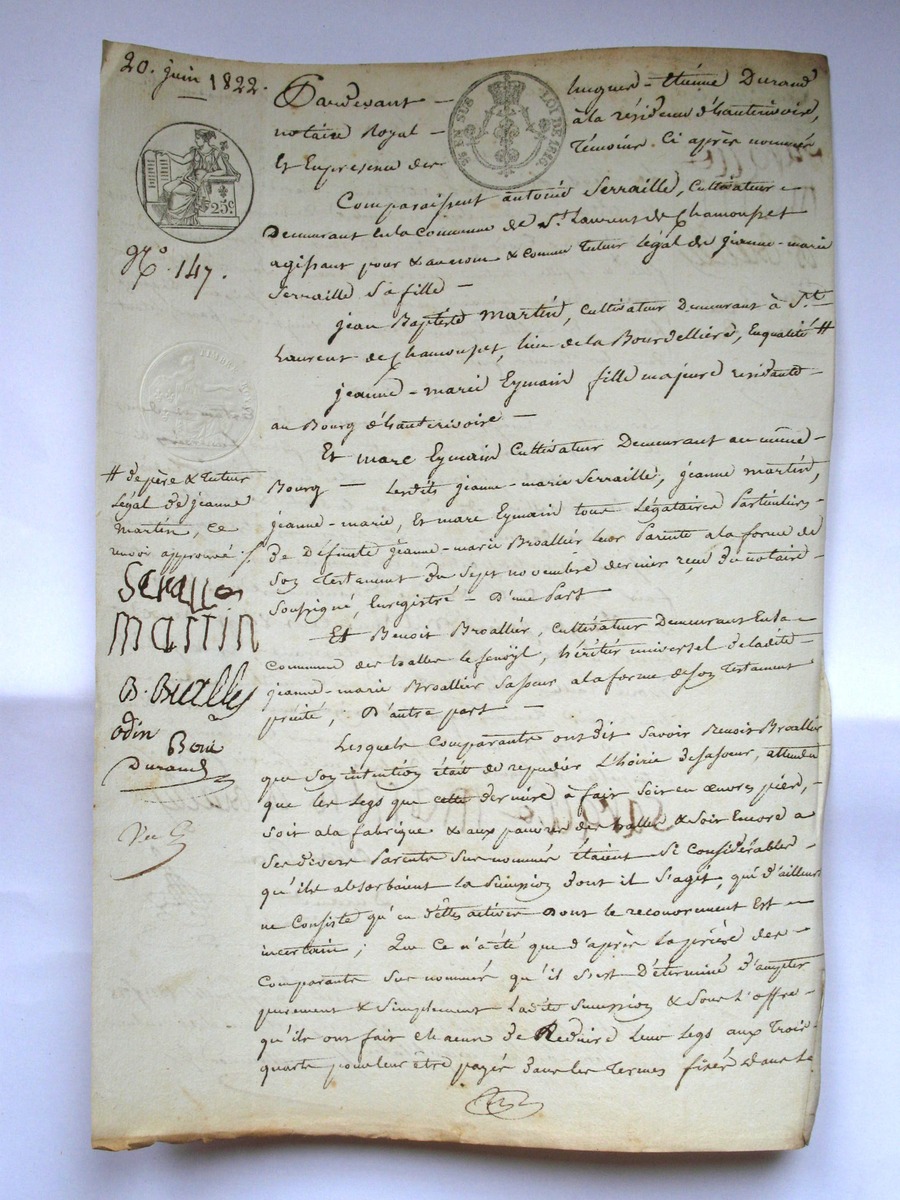 20. juin 1822.
Pardevant - hugues-étienne Durand
notaire Royal - à la résidence d'hauterivoire,
Et En presence des Témoins Ci après nommés
EN SUS LOI DE 1816.
25c.
N.o 147.
Comparaissent antoine Serraille, Cultivateur -
Demeurant En la Commune de St. Laurent de Chamousset
agissant pour & au nom & comme tuteur légal de jeanne-marie
Serraille Sa fille -
jean Baptiste Martin, Cultivateur Demeurant à St. -
Laurent de Chamousset, lieu de la Bourdellière, En qualité #
jeanne-marie Eymain fille majeure residante -
au Bourg d'hauterivoire -
Et marc Eymain Cultivateur Demeurant au même -
Bourg - Lesdits jeanne-marie Serraille, jeanne martin,
jeanne-marie, Et marc Eymain tous Légataires Particuliers -
de Défunte jeanne-marie Broallier leur Parente a la forme de
Son Testament du Sept novembre dernier reçu du notaire -
Soussigné, Enregistré - D'une Part
# de père & tuteur
légal de jeanne
martin, Ce
renvoi approuvé
Serraille
martin
B. Broallier
odin
Durand
Et Benoit Broallier, Cultivateur Demeurant En la -
Commune des halles le fenoÿl, héritier universel de ladite -
jeanne-marie Broallier Sa soeur a la forme de Son Testament
précité, D'autre part -
Lesquels Comparants ont dit Savoir Benoit Broallier
que Son intention était de repudier L'hoirie de Sa soeur, attendu
que les legs que cette derniere à fait Soit en oeuvres pies, -
Soit a la fabrique & aux pauvres des halles & Soit Encore a
Ses divers Parents Sus nommés étaient Si Considérables -
qu'ils absorbaient la Sucession dont il S'agit, qui d'ailleurs
ne Consiste qu'en dettes actives Dont le recouvrement Est -
incertain ; Que Ce n'a été que d'après la prière des -
Comparants Sus nommés qu'il S'est Déterminé d'accepter
purement & Simplement Ladite Sucession & Sous L'offre -
qu'ils ont fait Chacun de Réduire Leurs legs aux Trois -
quarts pour leur être payés dans les Termes fixés dans Le